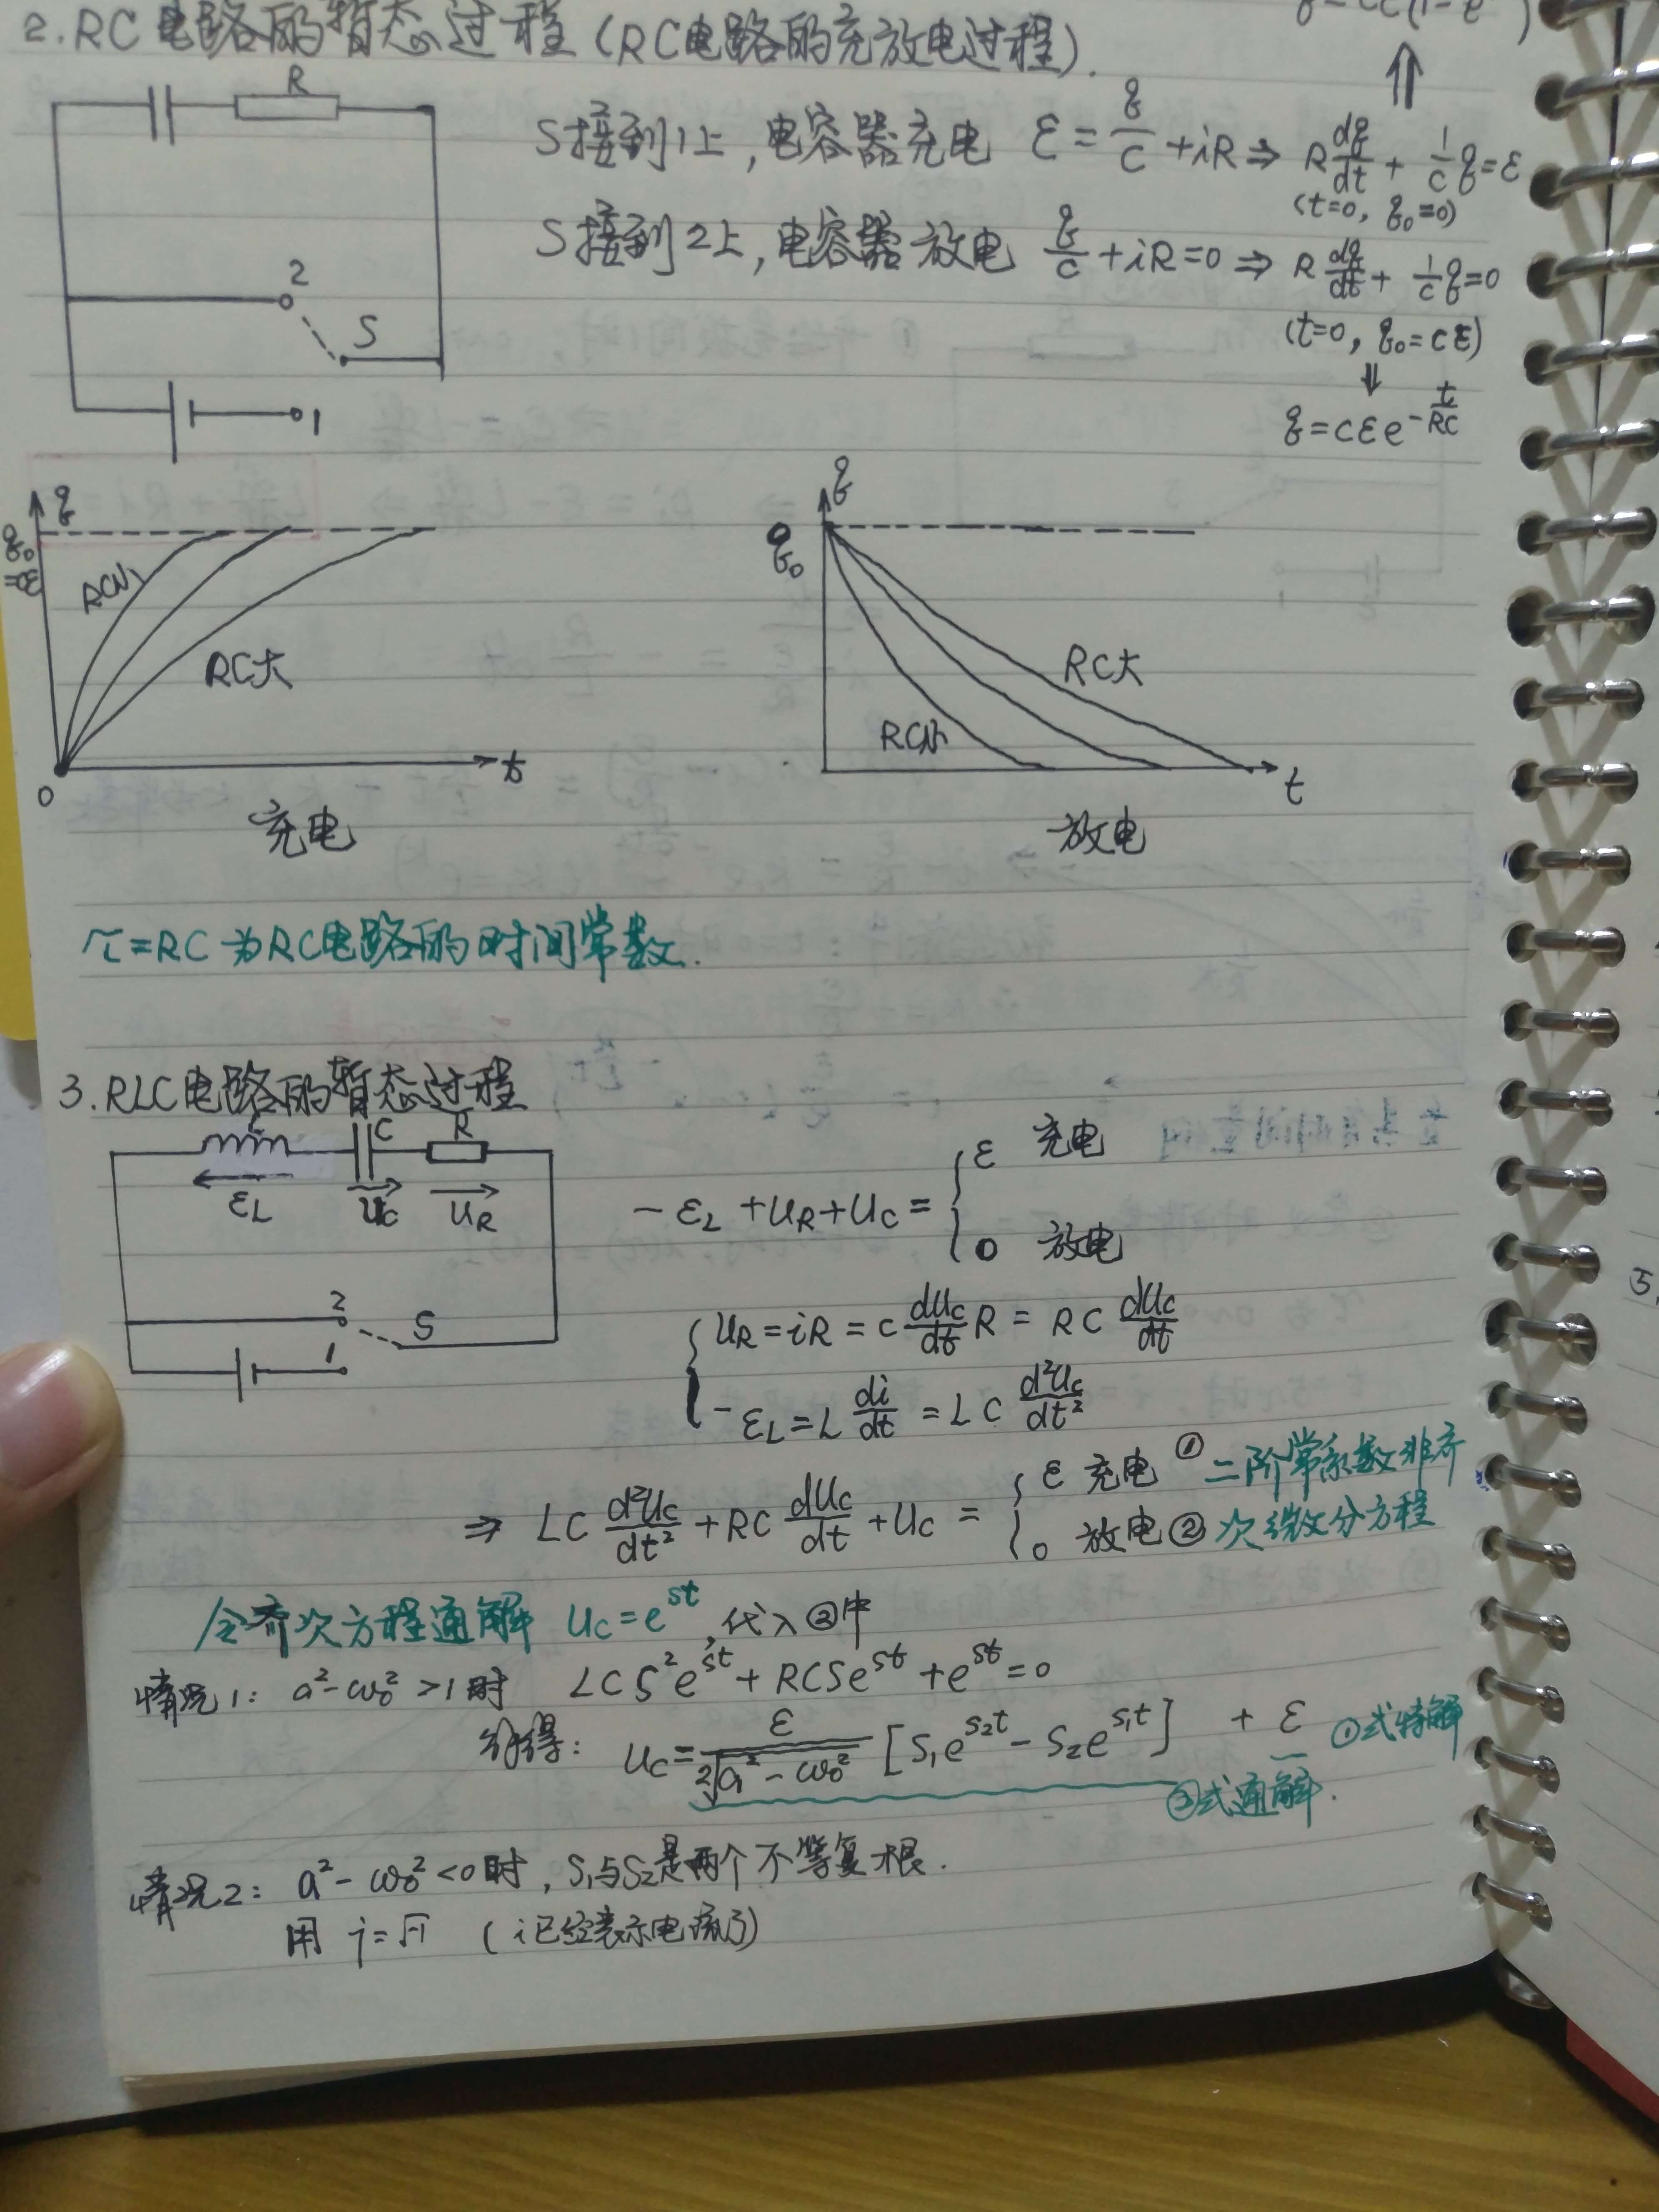 2.RC电路的暂态过程(RC电路的充放电过程).
R
S接到1上,电容器充电 ε=q/C+iR⇒ R dq/dt + 1/C q=ε
(t=0, q₀=0)
S接到2上,电容器放电 q/C+iR=0 ⇒ R dq/dt + 1/C q=0
(t=0, q₀=Cε)
⇓
q=Cεe^(-t/RC)
2
S
1
q
q₀
=Cε
RC小
RC大
0
t
充电
q
q₀
RC大
RC小
t
放电
τ=RC为RC电路的时间常数.
3.RLC电路的暂态过程
L C R
ε_L u_C u_R
2
S
1
-ε_L+u_R+u_C= { ε 充电
0 放电
{ u_R=iR=C du_C/dt R= RC du_C/dt
-ε_L=L di/dt =LC d²u_C/dt²
⇒ LC d²u_C/dt² +RC du_C/dt +u_C = { ε 充电 ① 二阶常系数非齐
0 放电 ② 次微分方程
令齐次方程通解 u_C=e^(st),代入②中
情况1: a²-ω₀²>1时 LCS²e^(st)+RCSe^(st)+e^(st)=0
解得: u_C= ε/(2√(a²-ω₀²)) [S₁e^(s₂t)-S₂e^(s₁t)] + ε ①式特解
②式通解.
情况2: a²-ω₀²<0时,S₁与S₂是两个不等复根.
用 j=√-1 (i已经表示电流了)